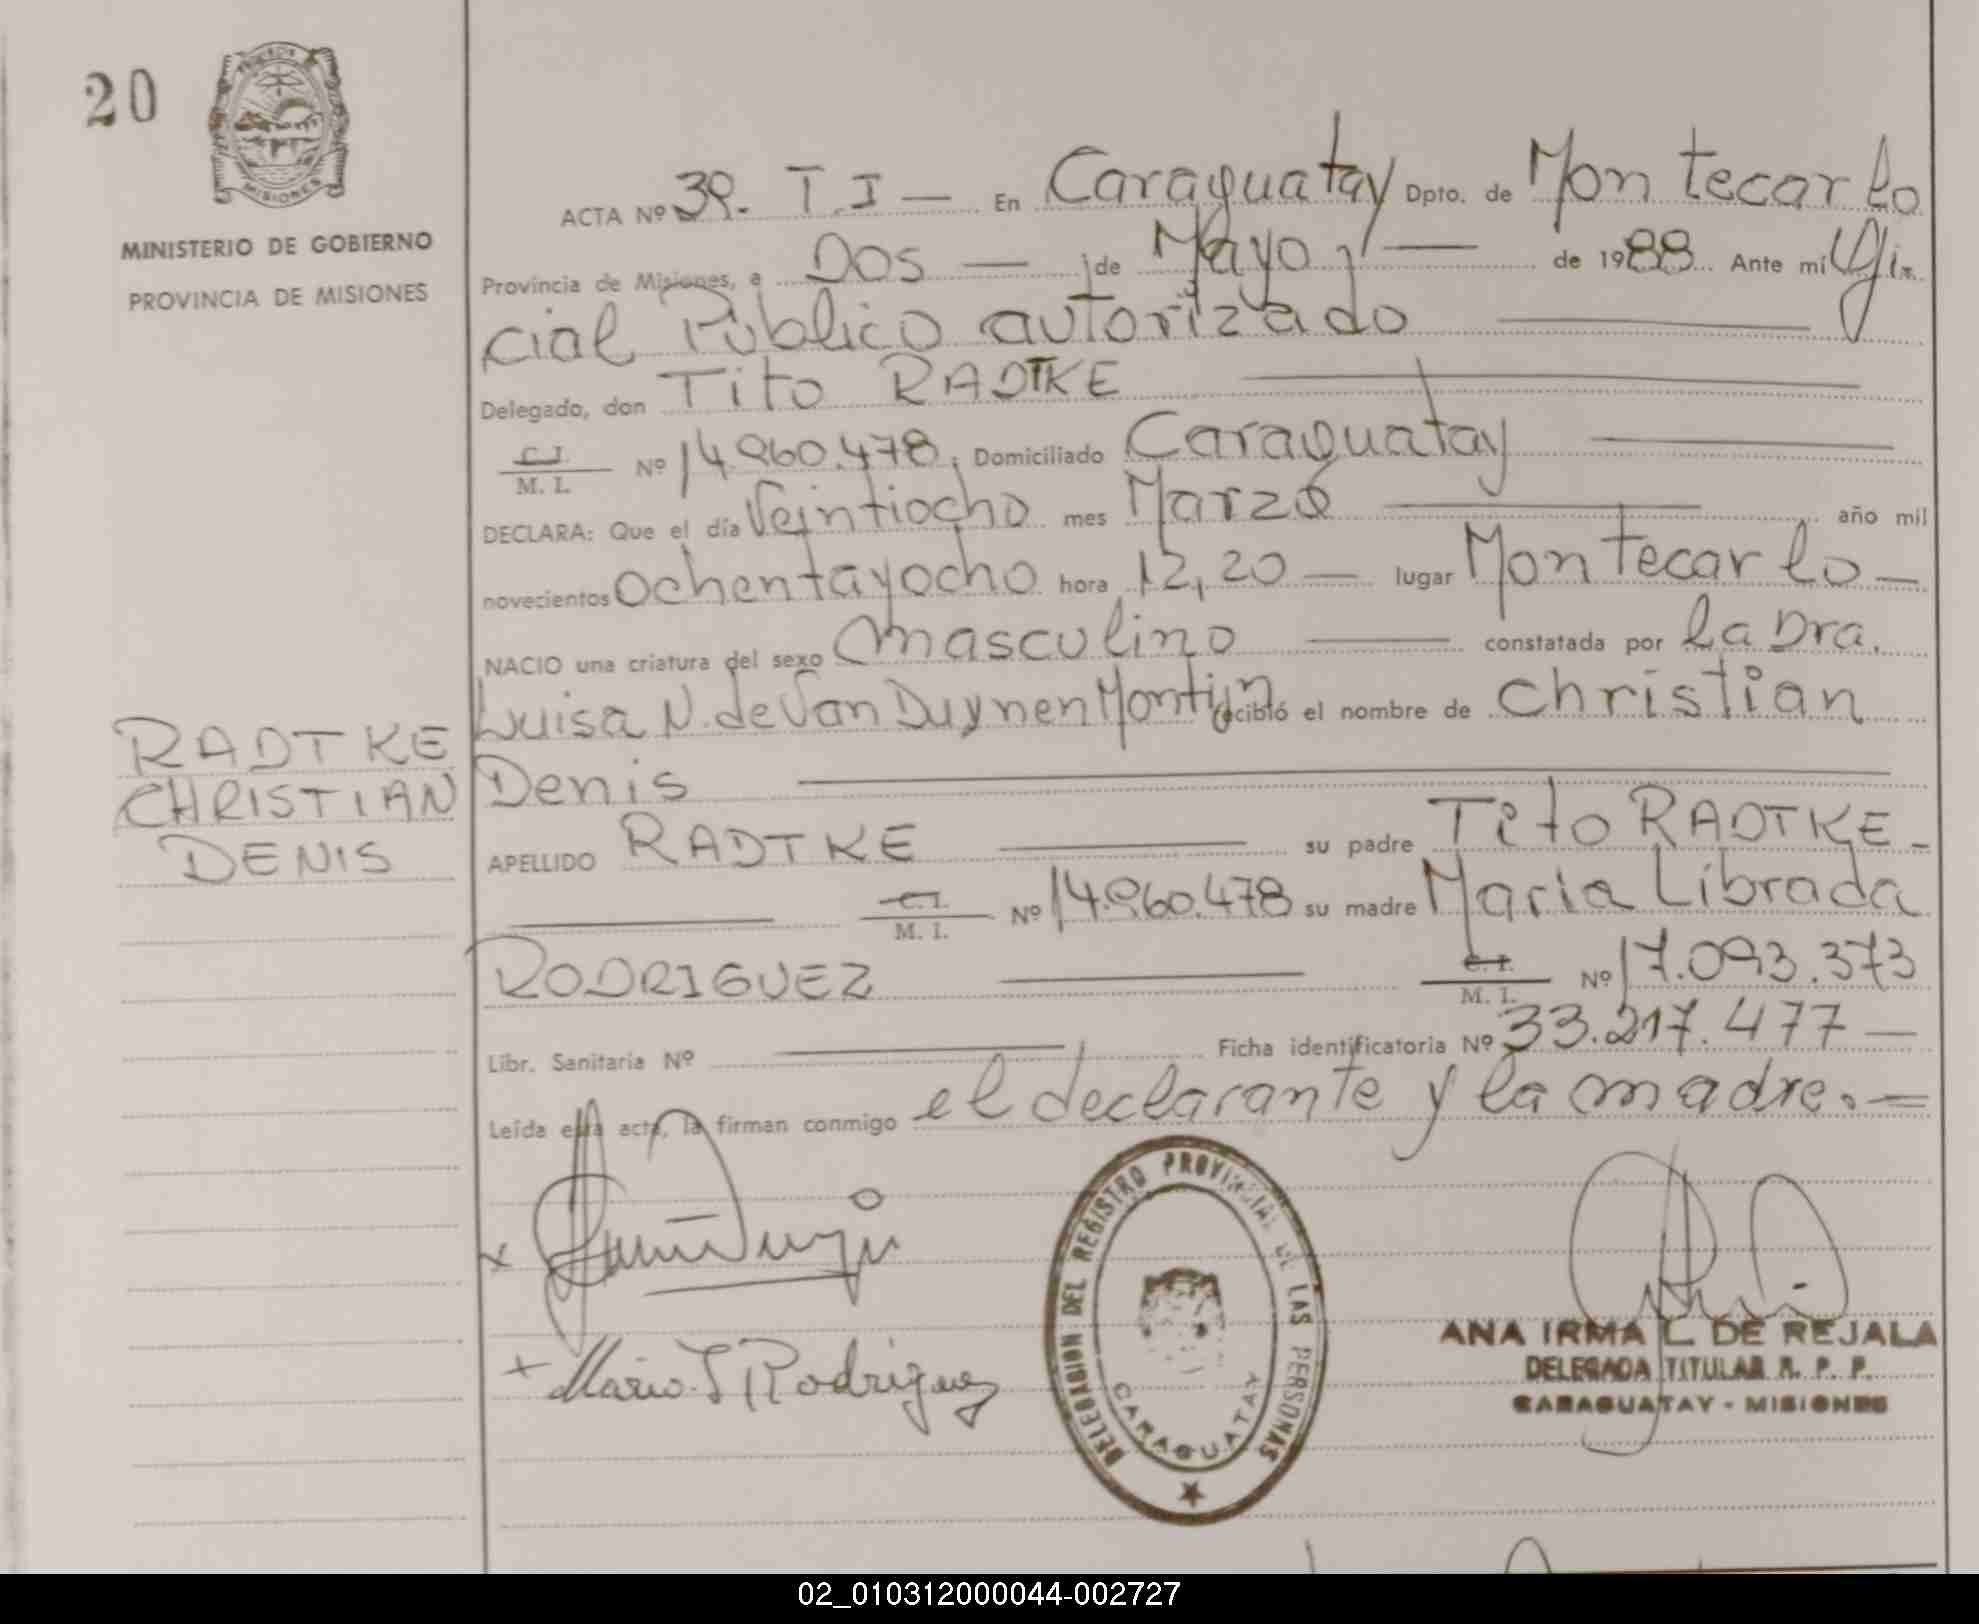 20
MISIONES
MINISTERIO DE GOBIERNO
PROVINCIA DE MISIONES
ACTA Nº 39. T.I — En Caraguatay Dpto. de Montecarlo
Provincia de Misiones, a Dos — de Mayo — de 1988. Ante mi Ofi
cial Público autorizado
Delegado, don Tito RADTKE
C.I. M. I. Nº 14.960.478, Domiciliado Caraguatay
DECLARA: Que el día Veintiocho mes Marzo año mil
novecientos ochentayocho hora 12,20 — lugar Montecarlo —
NACIO una criatura del sexo masculino constatada por la Dra.
Luisa N. de Van Duynen Montijn recibió el nombre de Christian
Denis
RADTKE
CHRISTIAN
DENIS
APELLIDO RADTKE su padre Tito RADTKE _
C.I. M. I. Nº 14.960.478 su madre Maria Librada
RODRIGUEZ C. I. M. I. Nº 17.093.373
Libr. Sanitaria Nº Ficha identificatoria Nº 33.217.477 —
Leída esta acta, la firman conmigo el declarante y la madre. =
DELEGACION DEL REGISTRO PROVINCIAL DE LAS PERSONAS
CARAGUATAY
x
+ Maria L Rodriguez
ANA IRMA L. DE REJALA
DELEGADA TITULAR R. P. P.
CARAGUATAY - MISIONES
02_010312000044-002727